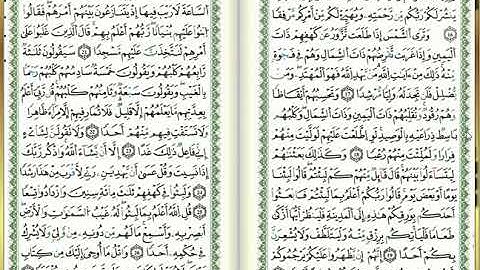 يَنشُرْ لَكُمْ رَبُّكُم مِّن رَّحْمَتِهِ وَيُهَيِّئْ لَكُم مِّنْ أَمْرِكُم مِّرْفَقًا
١٦ وَتَرَى الشَّمْسَ إِذَا طَلَعَت تَّزَاوَرُ عَن كَهْفِهِمْ ذَاتَ
الْيَمِينِ وَإِذَا غَرَبَت تَّقْرِضُهُمْ ذَاتَ الشِّمَالِ وَهُمْ فِي فَجْوَةٍ
مِّنْهُ ذَلِكَ مِنْ آيَاتِ اللَّهِ مَن يَهْدِ اللَّهُ فَهُوَ الْمُهْتَدِ وَمَن
يُضْلِلْ فَلَن تَجِدَ لَهُ وَلِيًّا مُّرْشِدًا ١٧ وَتَحْسَبُهُمْ أَيْقَاظًا
وَهُمْ رُقُودٌ وَنُقَلِّبُهُمْ ذَاتَ الْيَمِينِ وَذَاتَ الشِّمَالِ وَكَلْبُهُم
بَاسِطٌ ذِرَاعَيْهِ بِالْوَصِيدِ لَوِ اطَّلَعْتَ عَلَيْهِمْ لَوَلَّيْتَ مِنْهُمْ
فِرَارًا وَلَمُلِئْتَ مِنْهُمْ رُعْبًا ١٨ وَكَذَلِكَ بَعَثْنَاهُمْ
لِيَتَسَاءَلُوا بَيْنَهُمْ قَالَ قَائِلٌ مِّنْهُمْ كَمْ لَبِثْتُمْ قَالُوا لَبِثْنَا
يَوْمًا أَوْ بَعْضَ يَوْمٍ قَالُوا رَبُّكُمْ أَعْلَمُ بِمَا لَبِثْتُمْ فَابْعَثُوا
أَحَدَكُم بِوَرِقِكُمْ هَذِهِ إِلَى الْمَدِينَةِ فَلْيَنظُرْ أَيُّهَا أَزْكَى
طَعَامًا فَلْيَأْتِكُم بِرِزْقٍ مِّنْهُ وَلْيَتَلَطَّفْ وَلَا يُشْعِرَنَّ
بِكُمْ أَحَدًا ١٩ إِنَّهُمْ إِن يَظْهَرُوا عَلَيْكُمْ يَرْجُمُوكُمْ
السَّاعَةَ لَا رَيْبَ فِيهَا إِذْ يَتَنَازَعُونَ بَيْنَهُمْ أَمْرَهُمْ فَقَالُوا
ابْنُوا عَلَيْهِم بُنْيَانًا رَّبُّهُمْ أَعْلَمُ بِهِمْ قَالَ الَّذِينَ غَلَبُوا عَلَى
أَمْرِهِمْ لَنَتَّخِذَنَّ عَلَيْهِم مَّسْجِدًا ٢١ سَيَقُولُونَ ثَلَاثَةٌ
رَّابِعُهُمْ كَلْبُهُمْ وَيَقُولُونَ خَمْسَةٌ سَادِسُهُمْ كَلْبُهُمْ رَجْمًا
بِالْغَيْبِ وَيَقُولُونَ سَبْعَةٌ وَثَامِنُهُمْ كَلْبُهُمْ قُل رَّبِّي أَعْلَمُ
بِعِدَّتِهِم مَّا يَعْلَمُهُمْ إِلَّا قَلِيلٌ فَلَا تُمَارِ فِيهِمْ إِلَّا مِرَاءً ظَاهِرًا
وَلَا تَسْتَفْتِ فِيهِم مِّنْهُمْ أَحَدًا ٢٢ وَلَا تَقُولَنَّ لِشَيْءٍ
إِنِّي فَاعِلٌ ذَلِكَ غَدًا ٢٣ إِلَّا أَن يَشَاءَ اللَّهُ وَاذْكُر رَّبَّكَ
إِذَا نَسِيتَ وَقُلْ عَسَى أَن يَهْدِيَنِ رَبِّي لِأَقْرَبَ مِنْ هَذَا رَشَدًا
٢٤ وَلَبِثُوا فِي كَهْفِهِمْ ثَلَاثَ مِائَةٍ سِنِينَ وَازْدَادُوا تِسْعًا
٢٥ قُلِ اللَّهُ أَعْلَمُ بِمَا لَبِثُوا لَهُ غَيْبُ السَّمَاوَاتِ وَالْأَرْضِ
أَبْصِرْ بِهِ وَأَسْمِعْ مَا لَهُم مِّن دُونِهِ مِن وَلِيٍّ وَلَا يُشْرِكُ
فِي حُكْمِهِ أَحَدًا ٢٦ وَاتْلُ مَا أُوحِيَ إِلَيْكَ مِن كِتَابِ